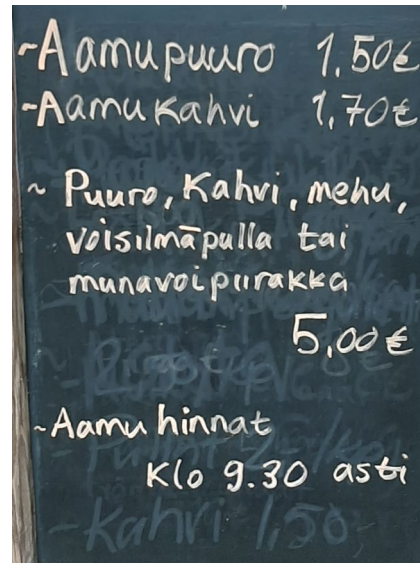 ~Aamupuuro 1,50€
-Aamukahvi 1,70€
~ Puuro, Kahvi, mehu,
voisilmäpulla tai
munavoipiirakka
5,00€
~Aamu hinnat
Klo 9.30 asti
-Kahvi 1,50